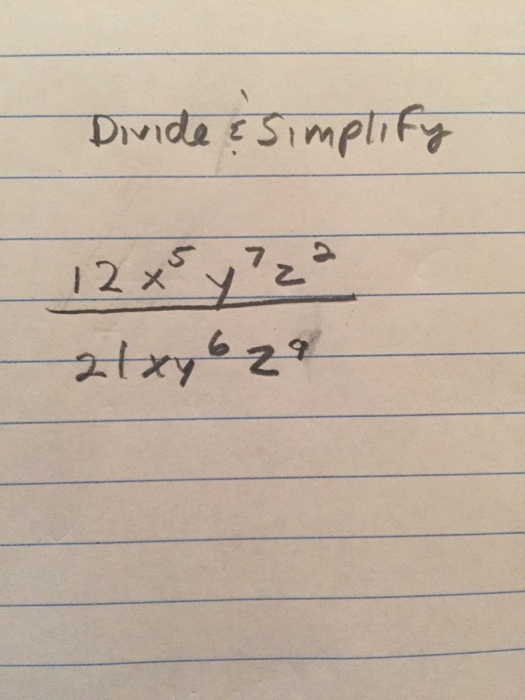 Divide & Simplify
12x⁵y⁷z²
21xy⁶z⁹